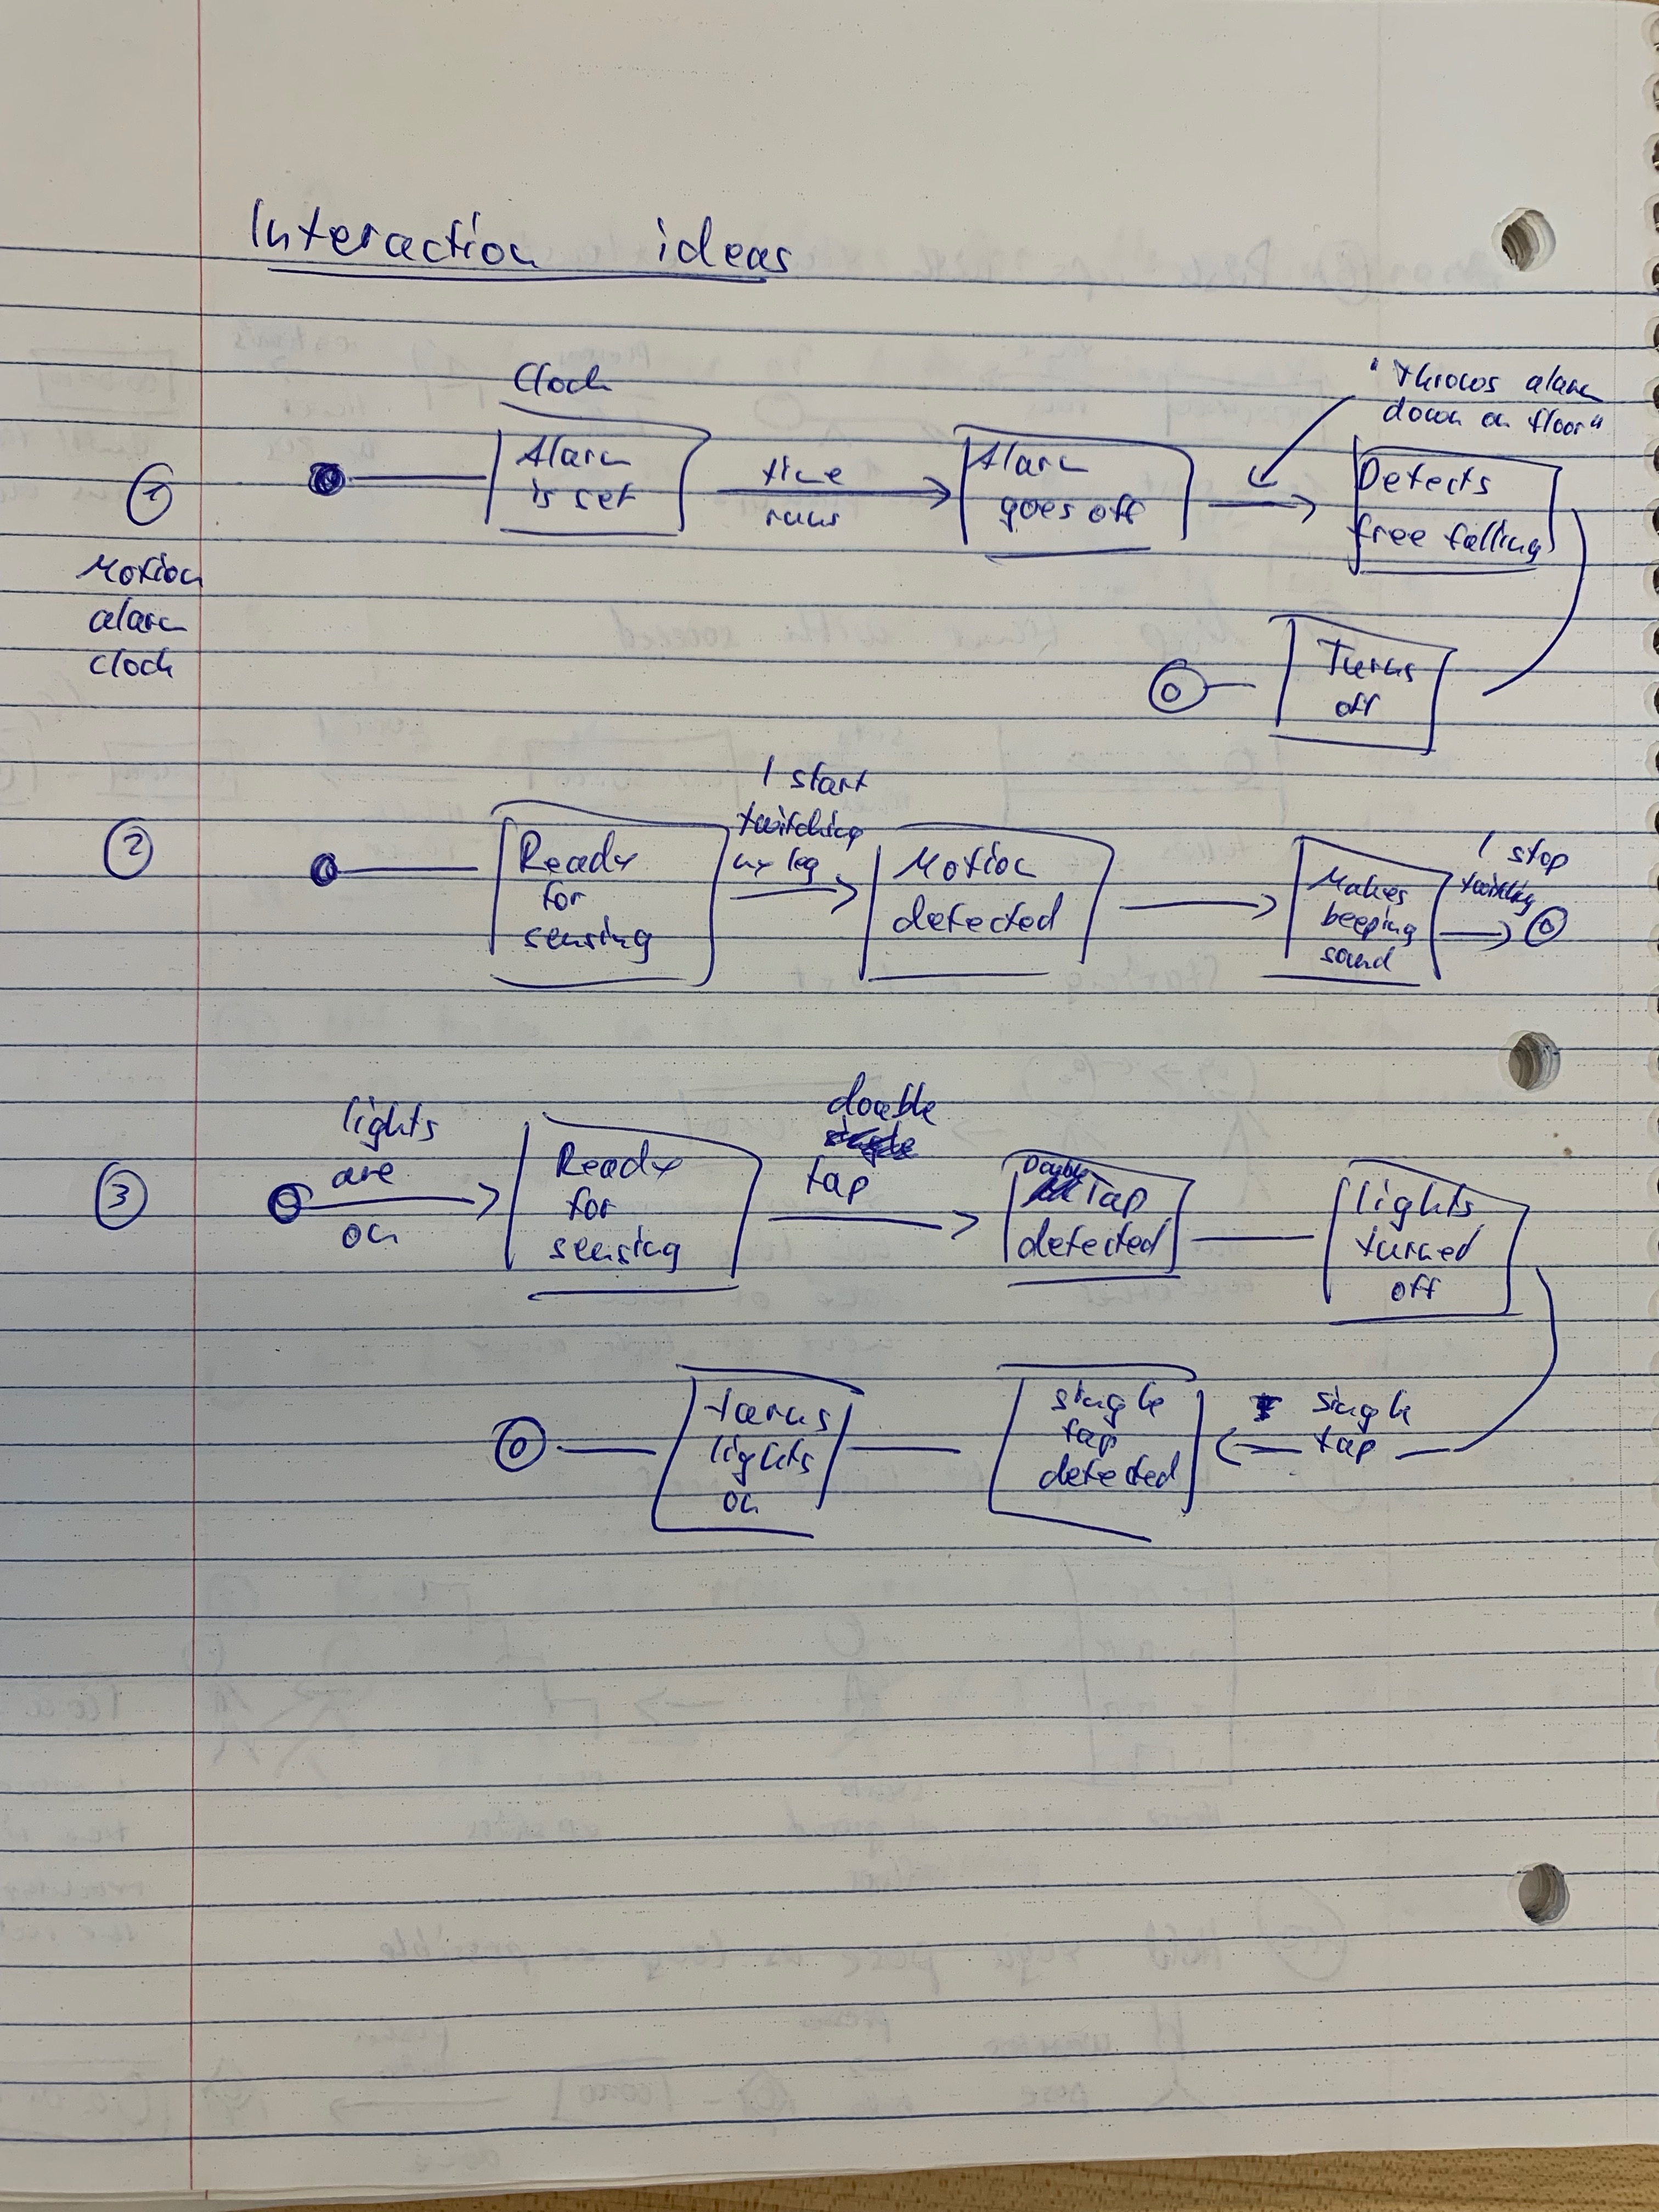 Interaction ideas
Clock
"throws alarm
down on floor"
1
Motion
alarm
clock
Alarm
is set
time
runs
Alarm
goes off
Detects
free falling
Turns
off
2
Ready
for
sensing
I start
twitching
my leg
Motion
detected
Makes
beeping
sound
I stop
twitching
3
lights
are
on
Ready
for
sensing
double
tap
Double
Tap
detected
lights
turned
off
single
tap
single
tap
detected
turns
lights
on